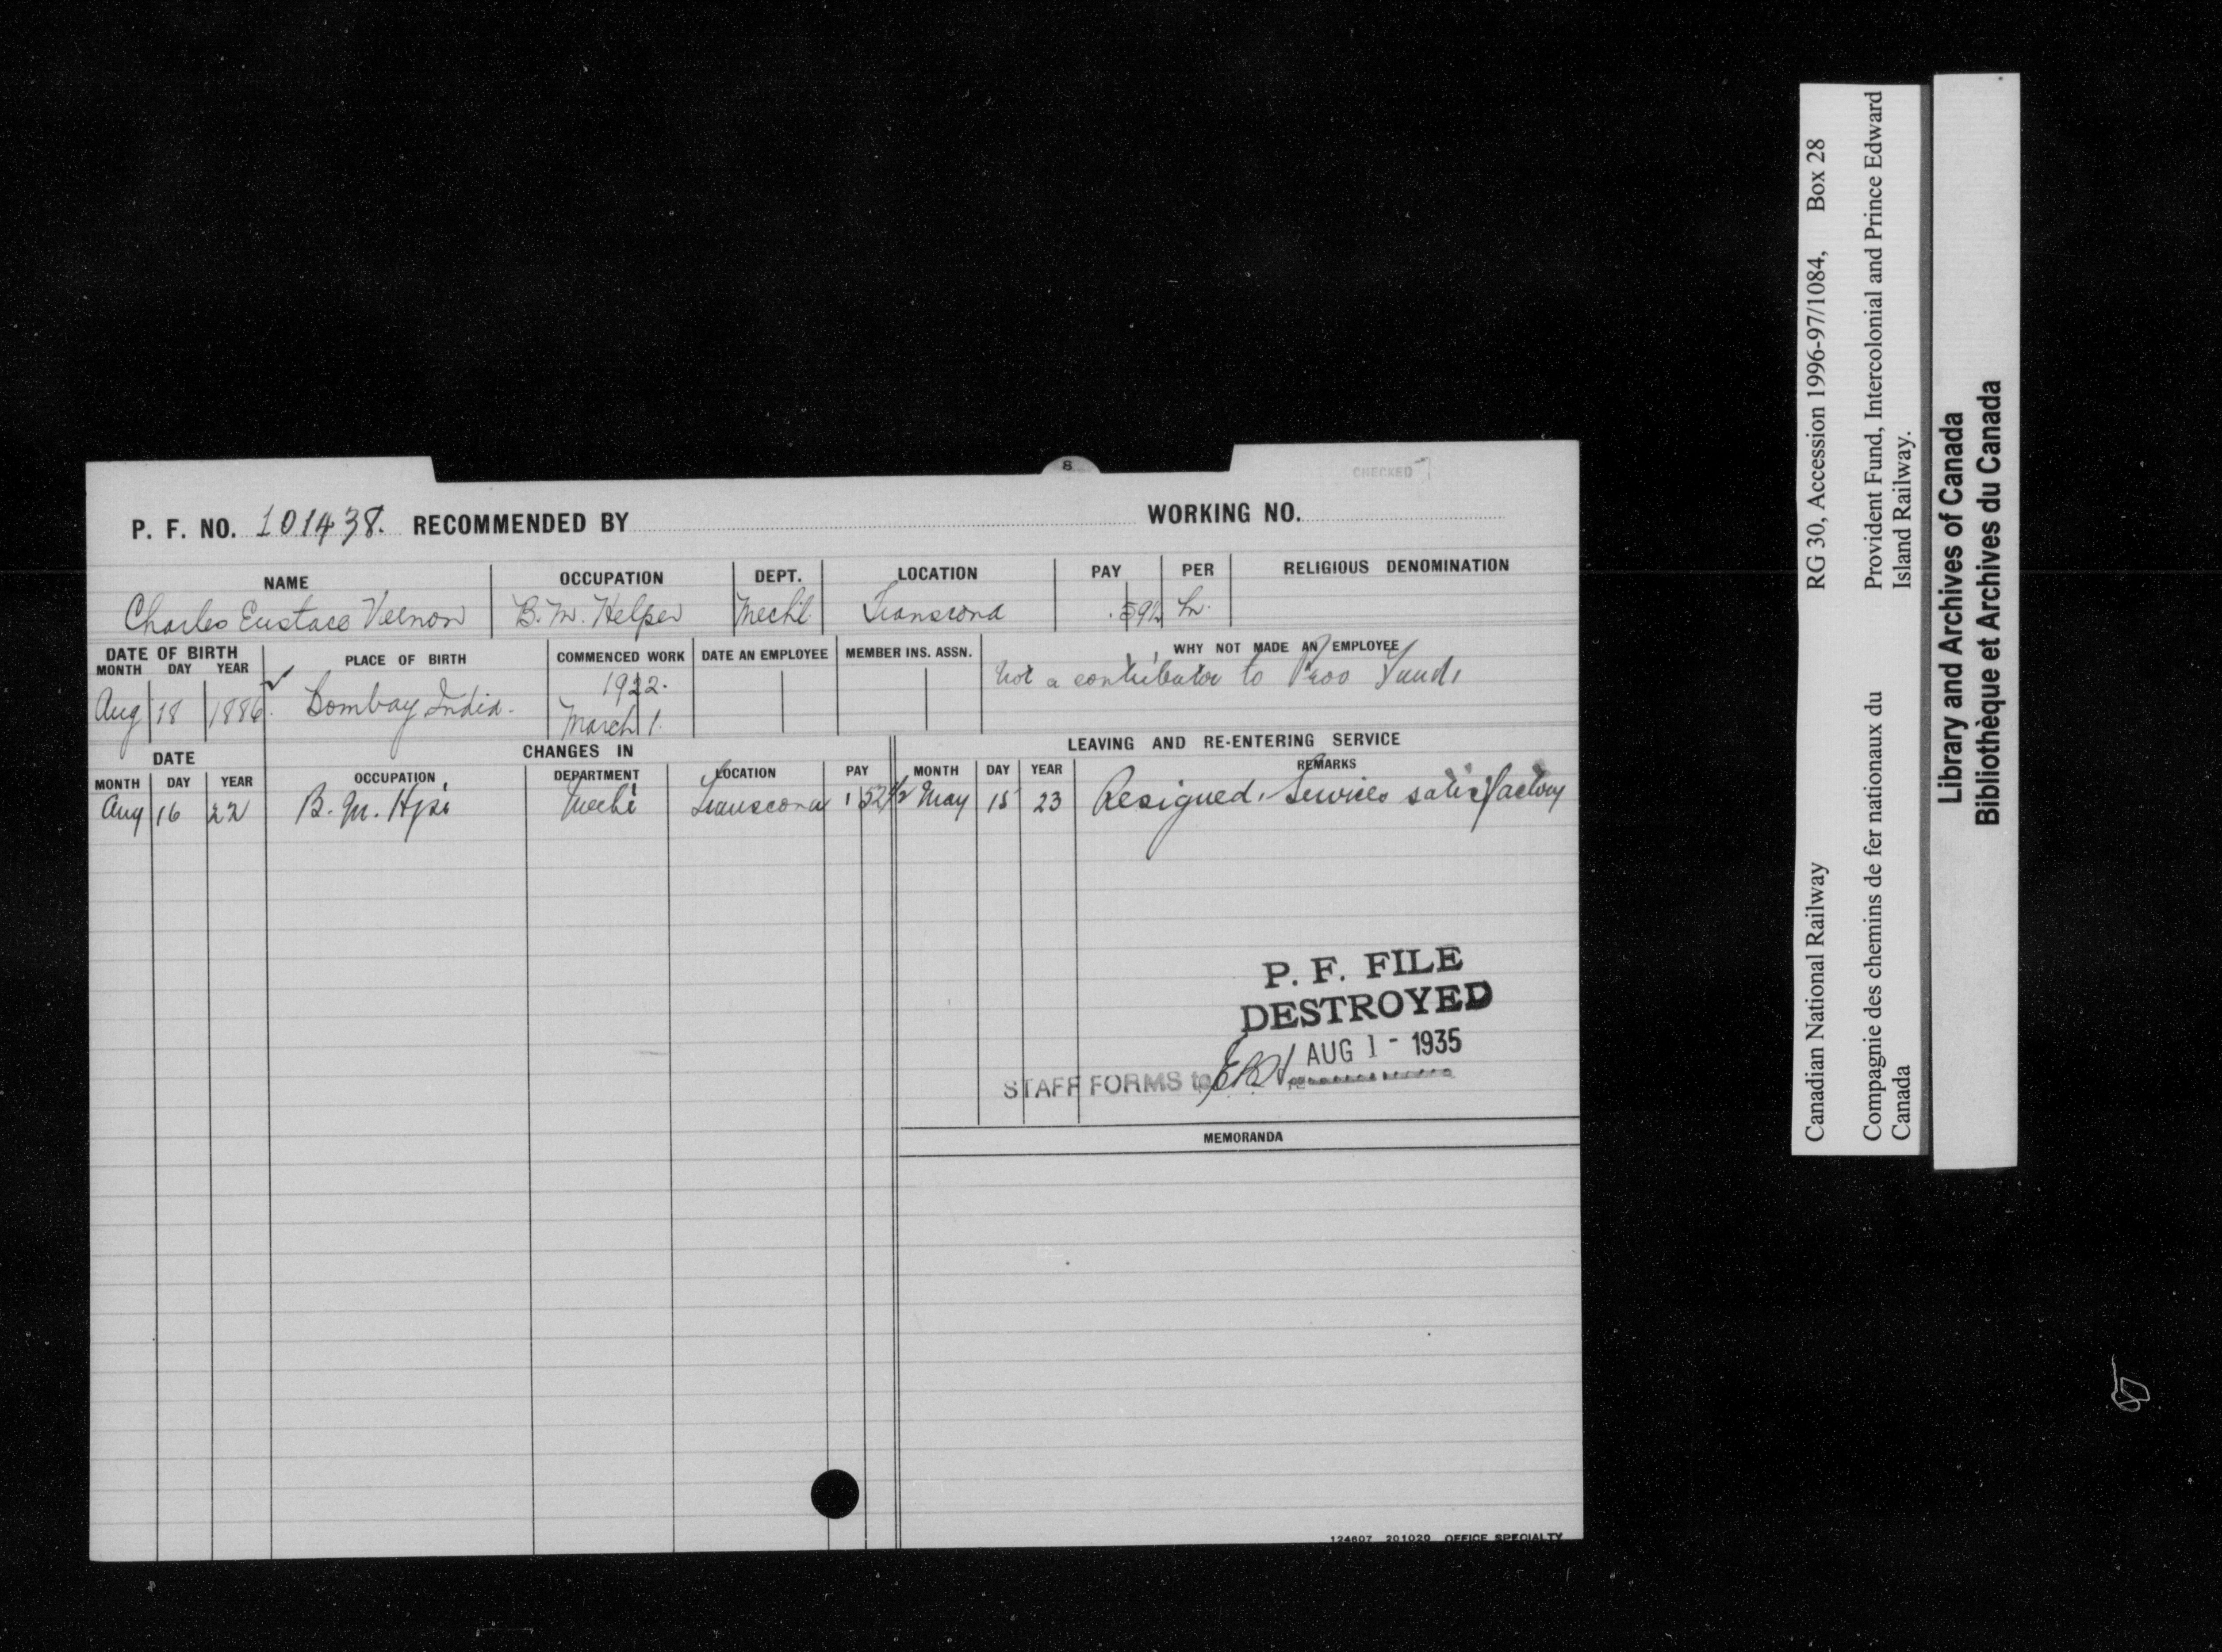 8
CHECKED
P. F. NO. 101438. RECOMMENDED BY WORKING NO.
NAME OCCUPATION DEPT. LOCATION PAY PER RELIGIOUS DENOMINATION
Charles Eustace Vernon B. M. Helper Mech'l. Transcona hr.
DATE OF BIRTH PLACE OF BIRTH COMMENCED WORK DATE AN EMPLOYEE MEMBER INS. ASSN. WHY NOT MADE AN EMPLOYEE
MONTH DAY YEAR
Aug 18 1886. Bombay India. 1922. March 1. Not a contributor to Prov Fund.
DATE CHANGES IN LEAVING AND RE-ENTERING SERVICE
MONTH DAY YEAR OCCUPATION DEPARTMENT LOCATION PAY MONTH DAY YEAR REMARKS
Aug 16 22 B. M. Hpr Mech'l Transcona 52½ May 15 23 Resigned. Services satisfactory
P. F. FILE
DESTROYED
AUG 1 - 1935
STAFF FORMS to
MEMORANDA
124607 201020 OFFICE SPECIALTY
Canadian National Railway RG 30, Accession 1996-97/1084, Box 28
Compagnie des chemins de fer nationaux du Canada
Provident Fund, Intercolonial and Prince Edward Island Railway.
Library and Archives of Canada
Bibliothèque et Archives du Canada